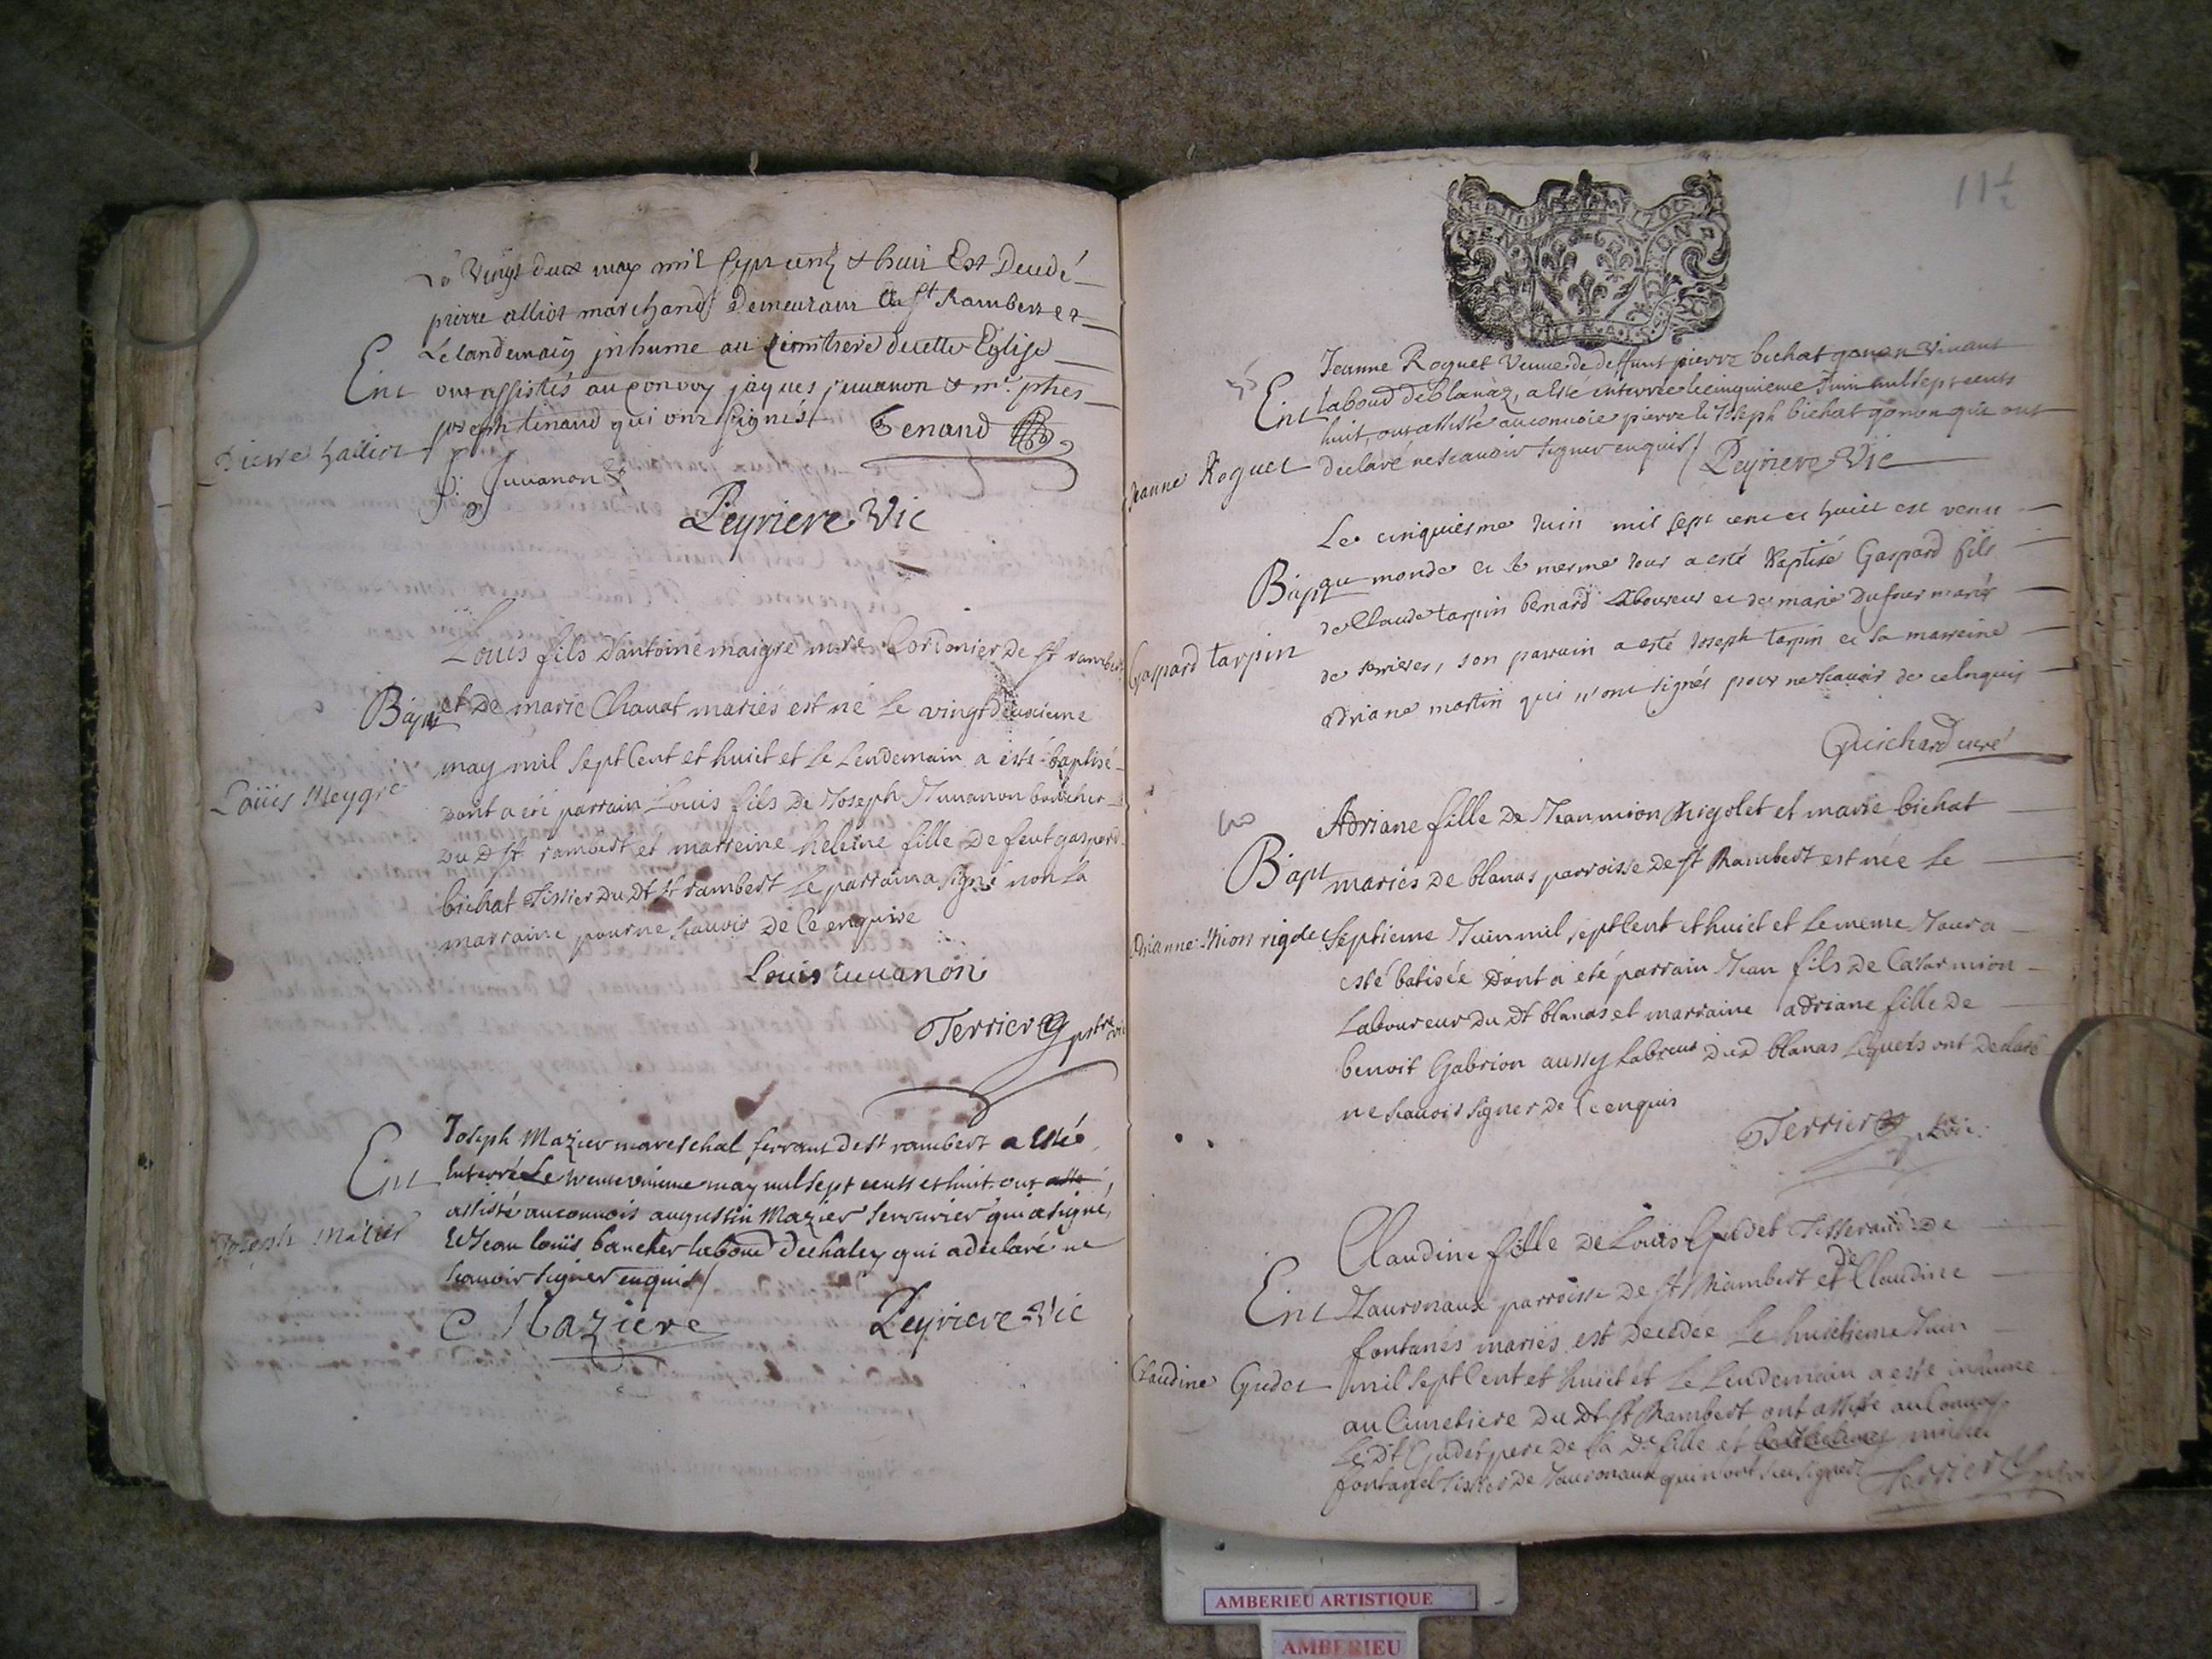 Le Vingt deux may mil sept cent & huit Est Decedé
pierre alliot marchand Demeurant a St Rambert et
Ent Le landemain inhume au cimitiere de cette Eglise
ont assistés au convoy jaques juvanon & mr. phes
joseph tenand qui ont signés Tenand
Pierre halliot
Juvanon
Peyriere Vic
Louis fils D'antoine maigre mre Cordonier De St rambert
Bapt et De marie Chavat mariés est né Le vingt deuxieme
may mil sept Cent et huict et Le Lendemain a esté baptisé
Loüis Meygre
Dont a été parrain Louis fils De Joseph Juvanon boucher
Du D St rambert et marreine heleine fille De feut gaspard
bichat Tissier Du Dt St rambert Le parrain a signé non La
marraine pour ne scavoir De Ce enquise
Louis juvanon
Terrier pbtre vic
Joseph Mazier mareschal ferrant de St rambert a Esté
Ent Enterré Le may mil sept cents et huit. ont
assisté au convois augustin Mazier serrurier qui a signé,
Joseph Mazier
Et Jean louïs bancher laboud dechaley qui a declaré ne
scavoir signer enquis
Maziere Peyriere Vic
11
Jeanne Roguet Veuve de deffunt pierre bichat gonon vivant
Ent laboud de blanaz, a esté enterrée le cinquieme Juin mil sept cents
huit, ont assisté au convoie pierre et Joseph bichat gonon qui ont
Jeanne Roguet declaré ne scavoir signer enquis Peyriere Vic
Le cinquiesme Juin mil sept cent et huict est venu
Bapt au monde et le mesme Jour a esté Baptisé Gaspard fils
de Claude tarpin benard laboureur et de marie Dufour mariés
Gaspard tarpin
de serrieres, son parrain a esté Joseph tarpin et sa marreine
adriane martin qui n'ont signés pour ne scavoir de ce enquis
Guichard curé
Adriane fille De Jean mion Rigolet et marie bichat
Bapt mariés de blanas parroisse De St Rambert est née Le
Adrianne Mion rigolet septieme Juin mil sept Cent et huict et Le meme Jour a
esté batisée Dont a été parrain Jean fils de Cesar mion
Laboureur Du Dt blanas et marraine adriane fille De
benoit Gabrion aussy Labreur Dud blanas Lequels ont Declaré
ne scavoir signer De Ce enquis
Terrier
Claudine fille De Louis Gudet Tisserand De
de
Ent Javornaux parroisse De St Rambert et Claudine
fontanés mariés est Decedée Le huictieme Juin
Claudine Gudet mil sept Cent et huict et Le Lendemain a esté inhume
au Cimetiere Du Dt St Rambert ont assisté au Convoy
Le Dt Gudet pere De La De fille et
fontanel Tissier De Javornaux qui n'ont sceu signer Terrier
AMBERIEU ARTISTIQUE
AMBERIEU